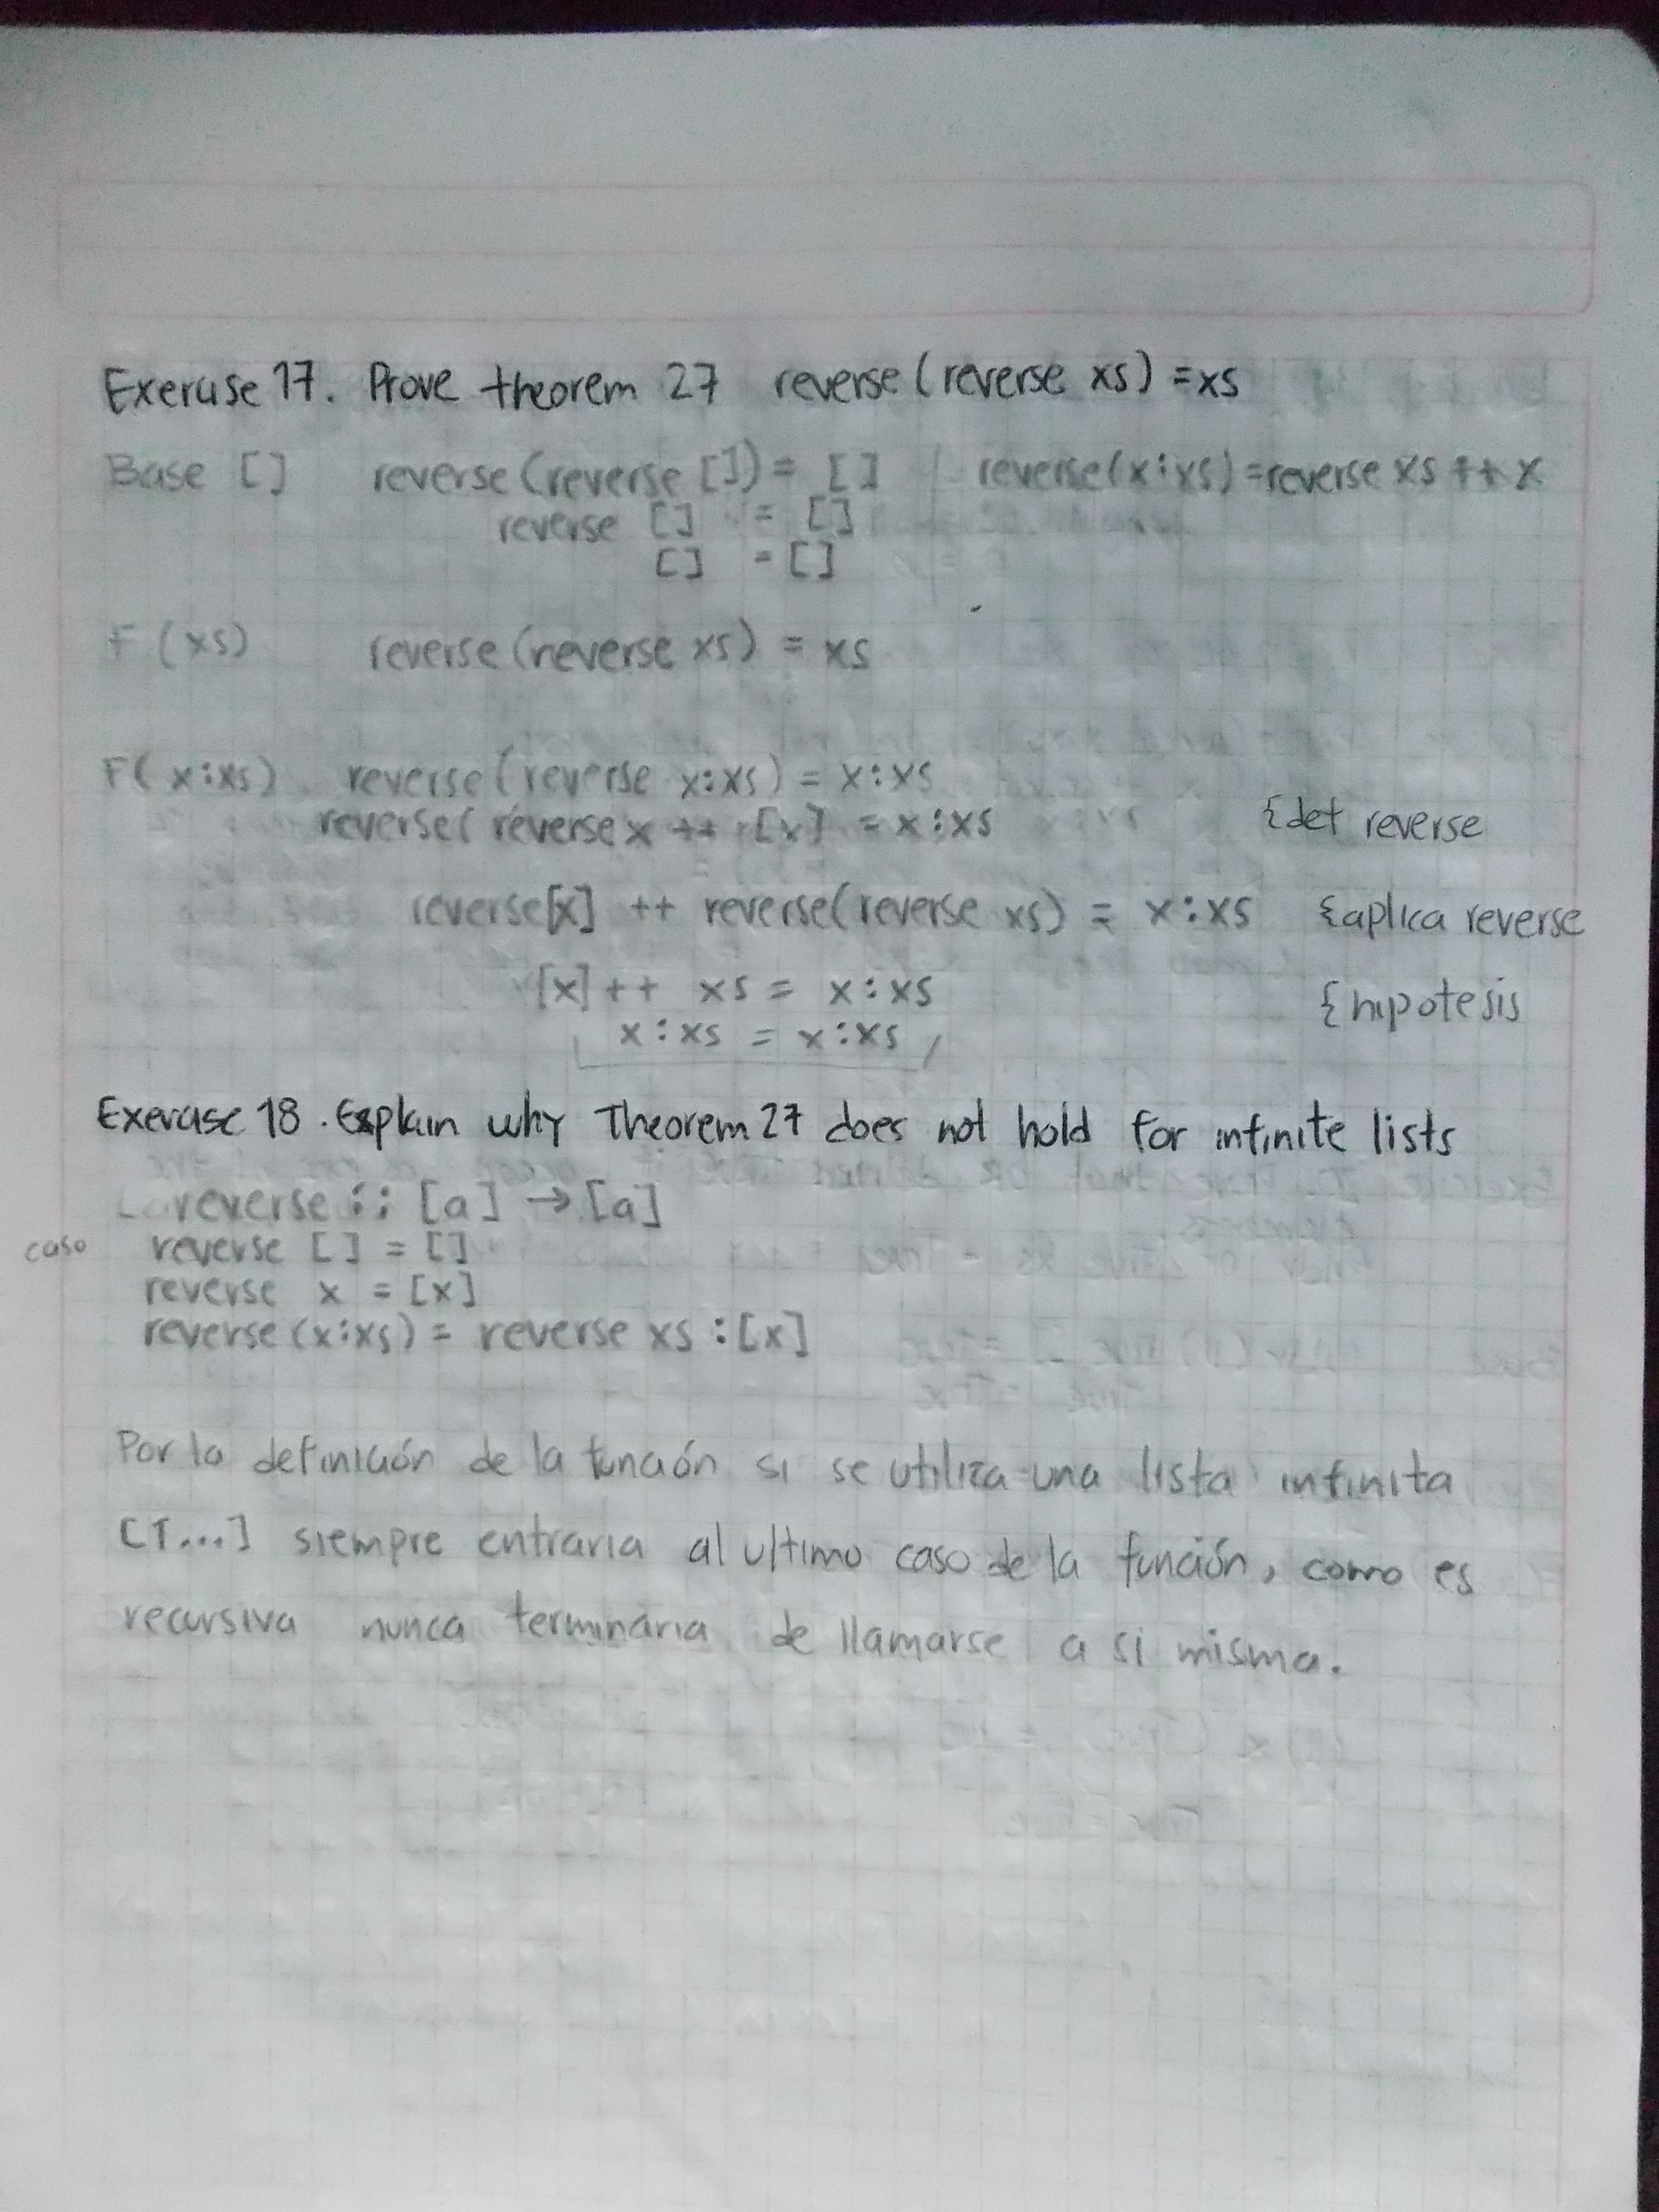 Exercise 17. Prove theorem 27 reverse(reverse xs) = xs
Base [] reverse(reverse []) = [] | reverse(x:xs) = reverse xs ++ x
reverse [] = []
[] = []
F(xs) reverse(reverse xs) = xs
F(x:xs) reverse(reverse x:xs) = x:xs
reverse( reverse x ++ [x] = x:xs {def reverse
reverse[x] ++ reverse(reverse xs) = x:xs {aplica reverse
[x] ++ xs = x:xs {hipotesis
x:xs = x:xs
Exercise 18. Explain why Theorem 27 does not hold for infinite lists
reverse :: [a] → [a]
caso reverse [] = []
reverse x = [x]
reverse(x:xs) = reverse xs : [x]
Por la definición de la función si se utiliza una lista infinita
[1...] siempre entraria al ultimo caso de la función, como es
recursiva nunca terminaria de llamarse a si misma.